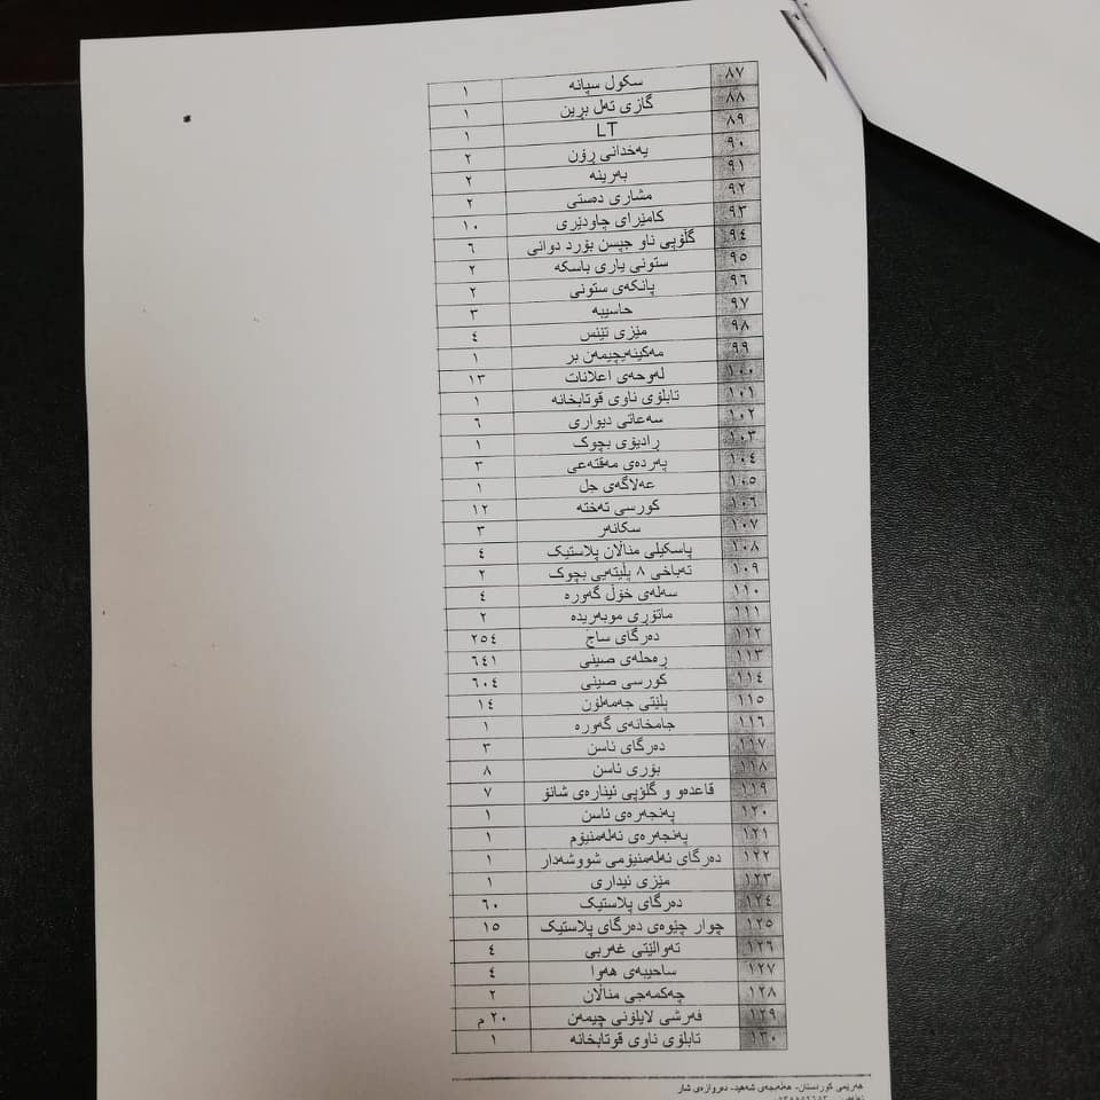 ٨٧ سکول سپانە ١
٨٨ گازی تەل برین ١
٨٩ LT ١
٩٠ یەخدانی ڕۆن ٢
٩١ بەرینە ٢
٩٢ مشاری دەستی ٢
٩٣ کامێرای چاودێری ١٠
٩٤ گڵۆپی ناو جپسن بۆرد دوانی ٦
٩٥ ستونی یاری باسکە ٢
٩٦ پانکەی ستونی ٢
٩٧ حاسیبە ٣
٩٨ مێزی تێنس ٤
٩٩ مەکینەیچیمەن بر ١
١٠٠ لەوحەی اعلانات ١٣
١٠١ تابلۆی ناوی قوتابخانە ١
١٠٢ سەعاتی دیواری ٦
١٠٣ ڕادیۆی بچوک ١
١٠٤ پەردەی مەقتەعی ٣
١٠٥ عەلاگەی جل ١
١٠٦ کورسی تەختە ١٢
١٠٧ سکانەر ٣
١٠٨ پاسکیلی مناڵان پلاستیک ٤
١٠٩ تەباخی ٨ پلێتەیی بچوک ٢
١١٠ سەلەی خۆڵ گەورە ٤
١١١ ماتۆڕی موبەریدە ٢
١١٢ دەرگای ساج ٢٥٤
١١٣ ڕەحلەی صینی ٦٤١
١١٤ کورسی صینی ٦٠٤
١١٥ پلێتی جەمەلۆن ١٤
١١٦ جامخانەی گەورە ١
١١٧ دەرگای ئاسن ٣
١١٨ بۆری ئاسن ٨
١١٩ قاعدەو و گلۆپی ئینارەی شانۆ ٧
١٢٠ پەنجەرەی ئاسن ١
١٢١ پەنجەرەی ئەلەمنیۆم ١
١٢٢ دەرگای ئەلەمنیۆمی شووشەدار ١
١٢٣ مێزی ئیداری ١
١٢٤ دەرگای پلاستیک ٦٠
١٢٥ چوار چێوەی دەرگای پلاستیک ١٥
١٢٦ تەوالێتی غەربی ٤
١٢٧ ساحیبەی هەوا ٤
١٢٨ چەکمەجی مناڵان ٢
١٢٩ فەرشی لایلۆنی چیمەن ٢٠ م
١٣٠ تابلۆی ناوی قوتابخانە ١
هەرێمی کوردستان- هەڵەبجەی شەهید- دەروازەی شار